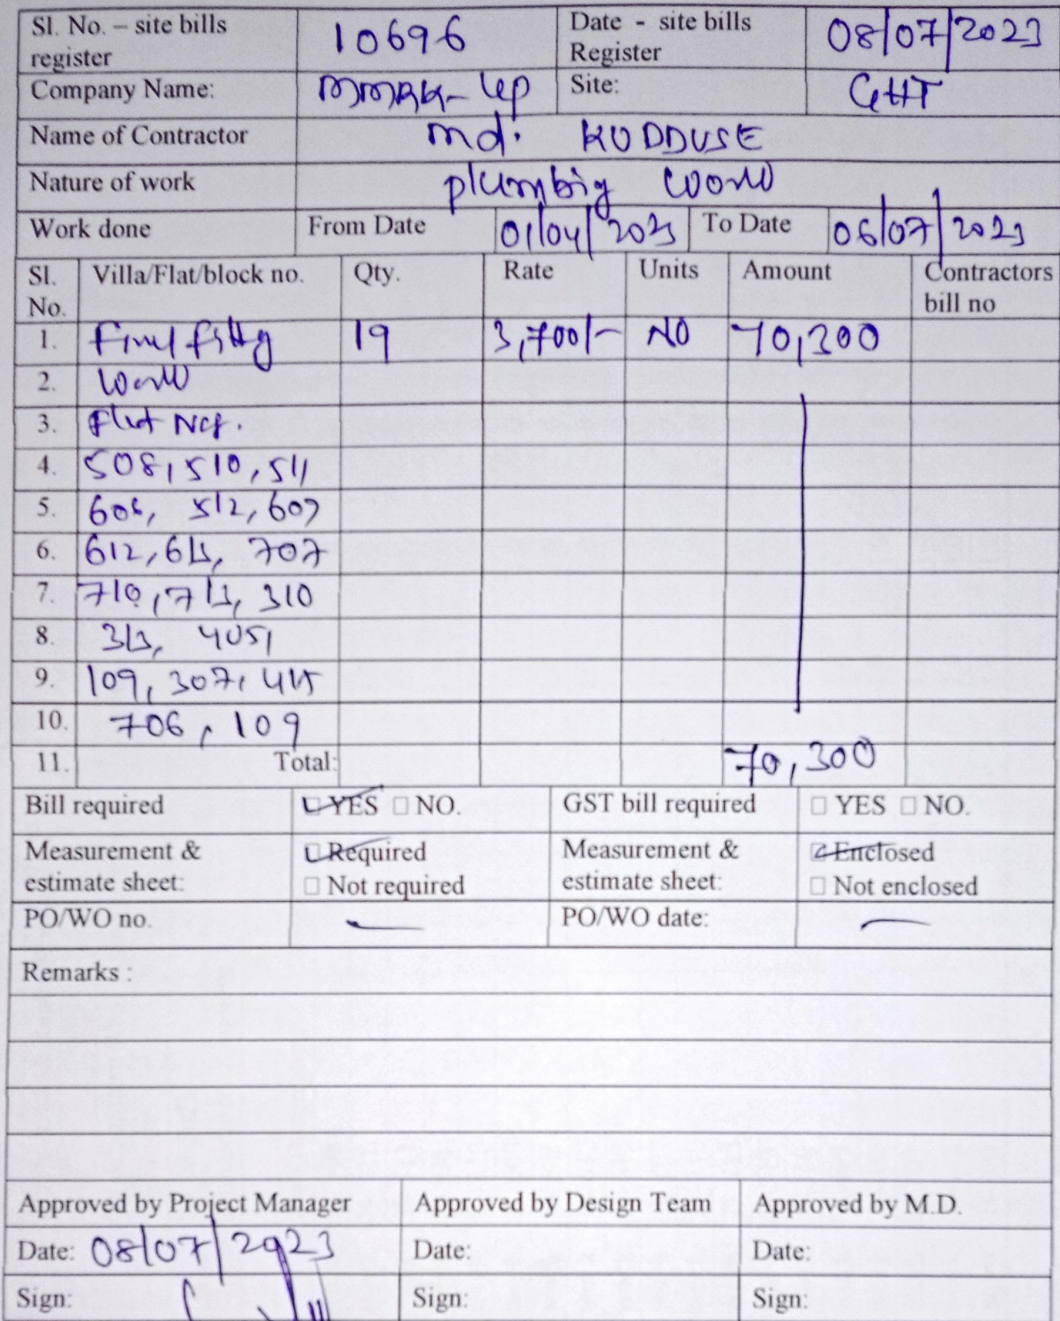 Sl. No. – site bills register 10696 Date - site bills Register 08/07/2023
Company Name: Site: GHT
Name of Contractor Md. KUDDUSE
Nature of work plumbig
Work done From Date 01/04/2023 To Date 06/07/2023
Sl. No. Villa/Flat/block no. Qty. Rate Units Amount Contractors bill no
1. 19 3,700/- NO 70,300
2.
3.
4. 508, 510, 511
5. 512, 607
6. 612, 707
7. 710, 713, 310
8. 313,
9. 109, 307,
10. 706, 109
11. Total: 70,300
Bill required ☑ YES ☐ NO. GST bill required ☐ YES ☐ NO.
Measurement & estimate sheet: ☑ Required ☐ Not required Measurement & estimate sheet: ☑ Enclosed ☐ Not enclosed
PO/WO no. — PO/WO date: —
Remarks :
Approved by Project Manager Approved by Design Team Approved by M.D.
Date: 08/07/2023 Date: Date:
Sign: Sign: Sign: